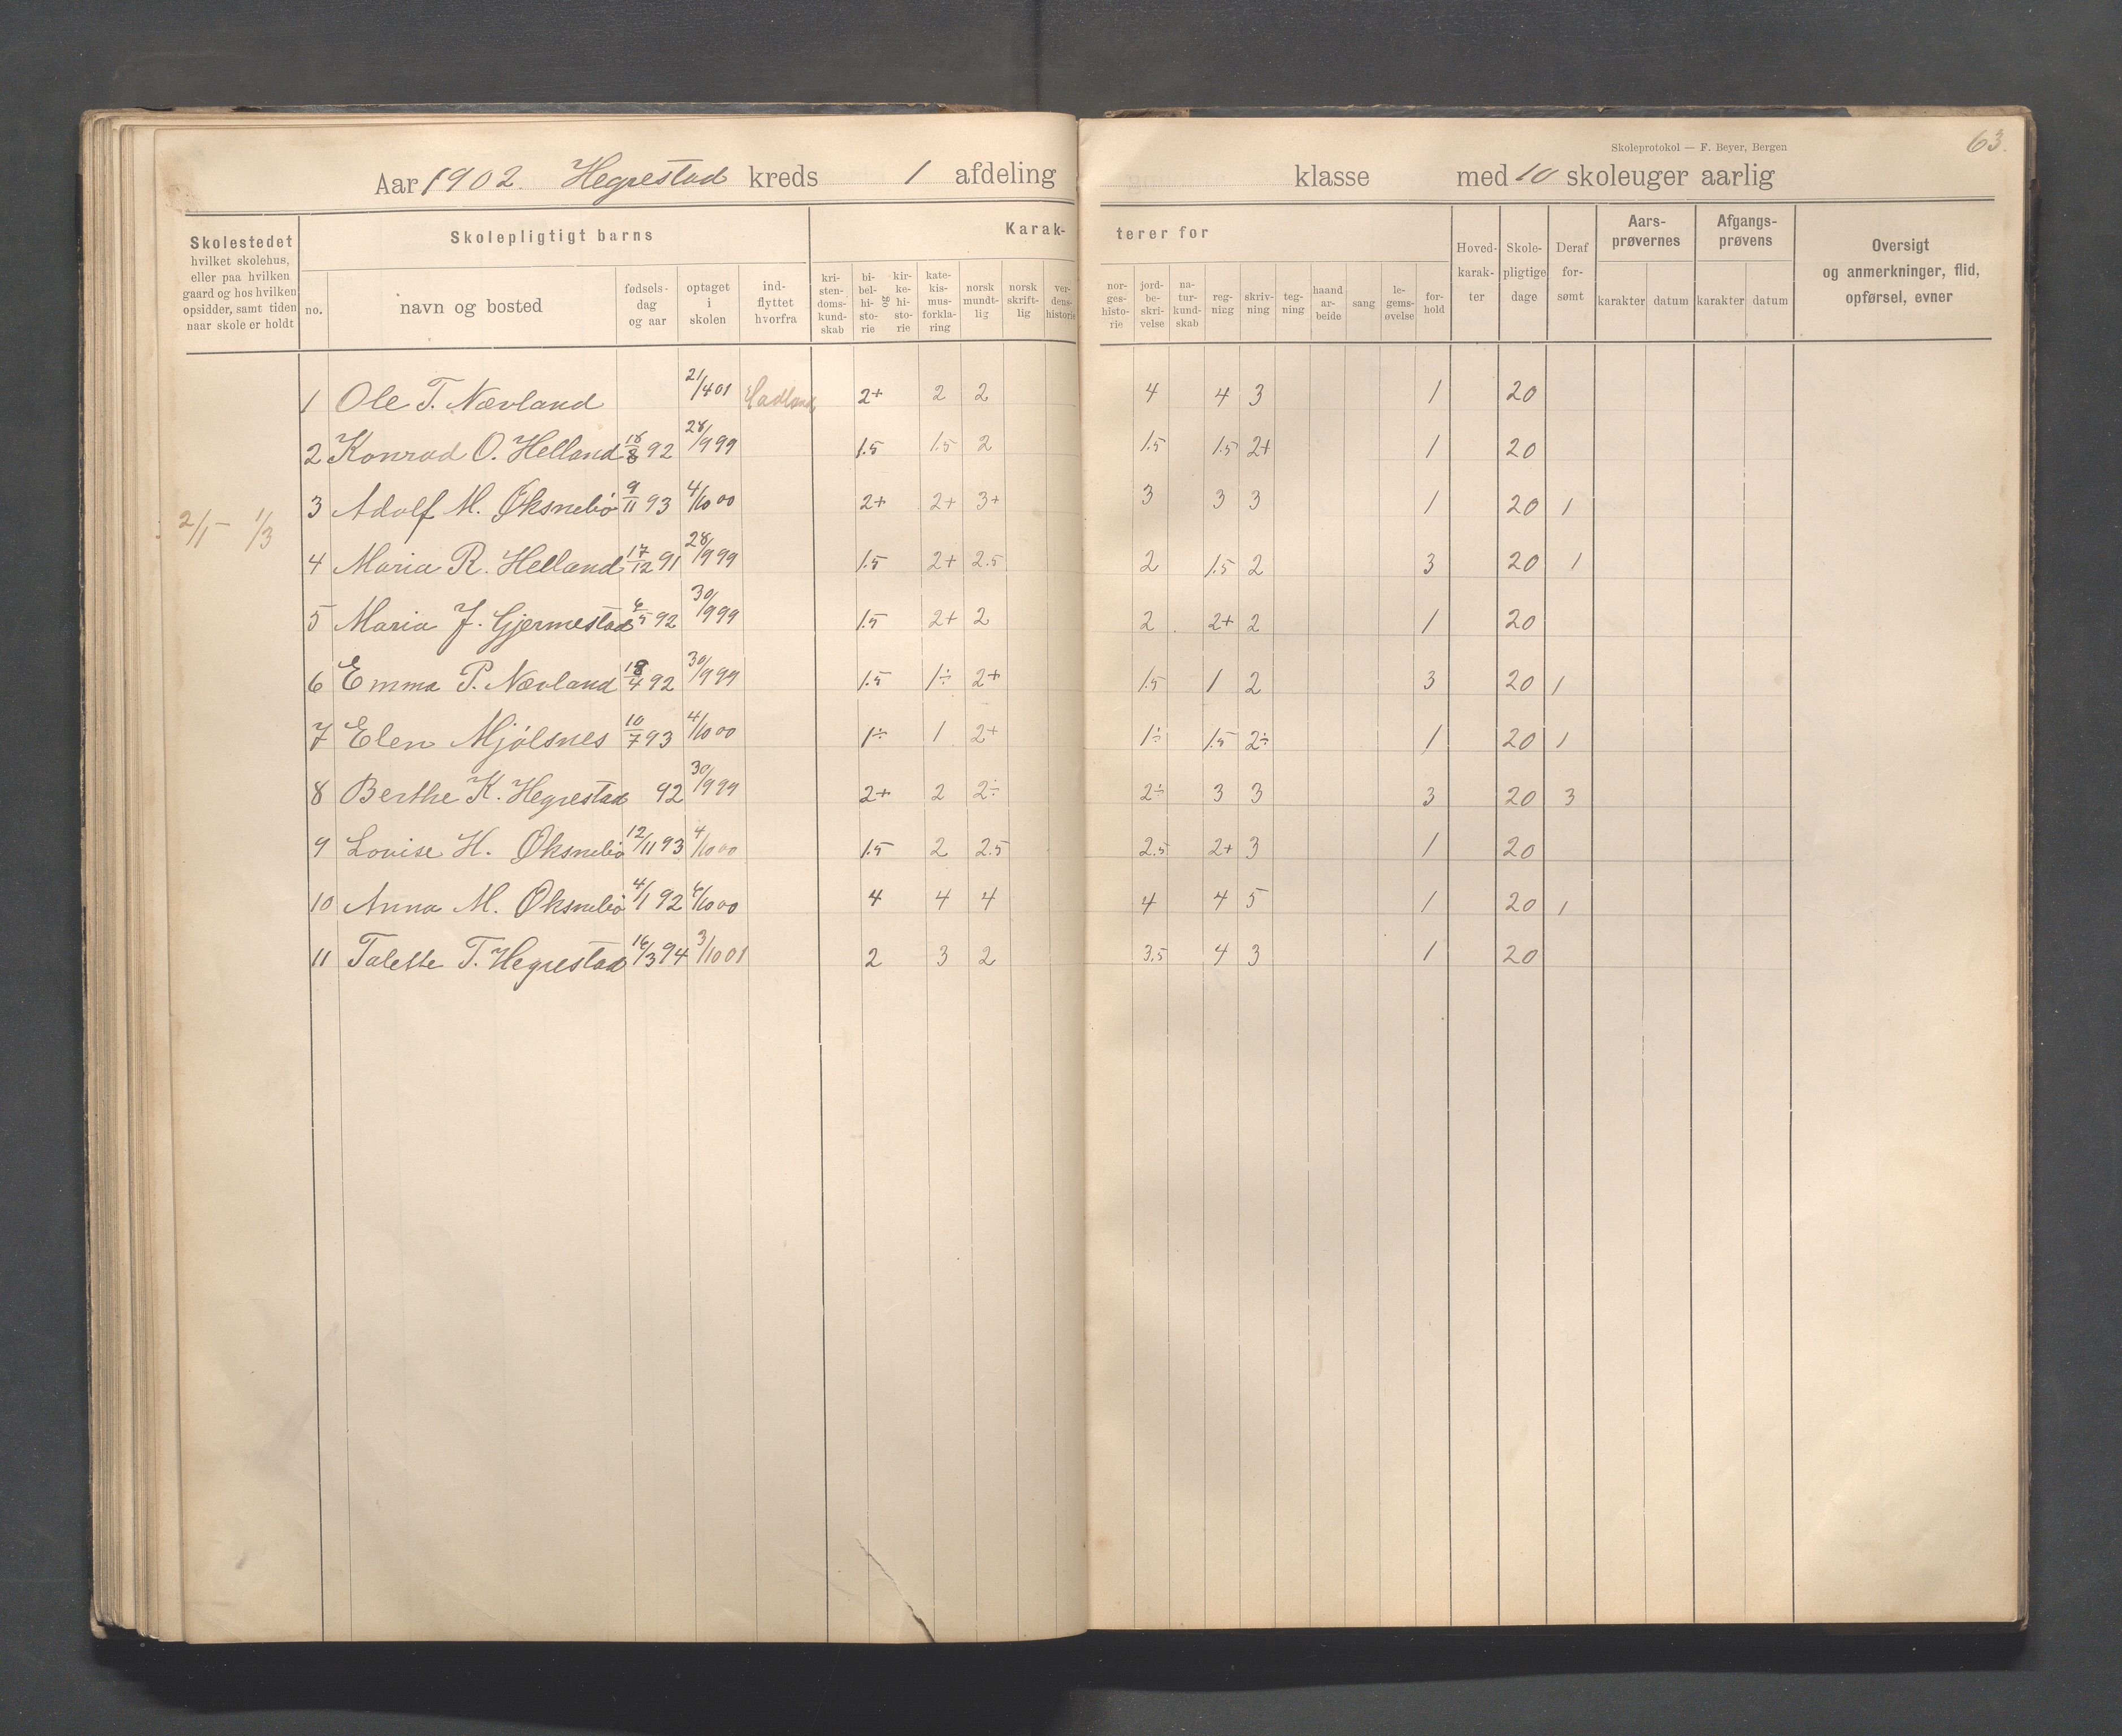 Skoleprotokol — F. Beyer, Bergen
63.
Aar 1902. Hegrestad kreds 1 afdeling klasse med 10 skoleuger aarlig
Skolestedet
hvilket skolehus,
eller paa hvilken
gaard og hos hvilken
opsidder, samt tiden
naar skole er holdt
Skolepligtigt barns
no.
navn og bosted
fødsels-
dag
og aar
optaget
i
skolen
ind-
flyttet
hvorfra
Karak-
terer for
kri-
sten-
doms-
kund-
skab
bi-
bel-
hi-
sto-
rie
og
kir-
ke-
hi-
sto-
rie
kate-
kis-
mus-
forkla-
ring
norsk
mundt-
lig
norsk
skrift-
lig
ver-
dens-
historie
nor-
ges-
histo-
rie
jord-
be-
skri-
velse
na-
tur-
kund-
skab
reg-
ning
skriv-
ning
teg-
ning
haand
ar-
beide
sang
le-
gems-
øvelse
for-
hold
Hoved-
karak-
ter
Skole-
pligtige
dage
Deraf
for-
sømt
Aars-
prøvernes
karakter datum
Afgangs-
prøvens
karakter datum
Oversigt
og anmerkninger, flid,
opførsel, evner
2/1 – 1/3
1 Ole T. Nævland 21/4 01 2+ 2 2 4 4 3 1 20
2 Konrad O. Helland 18/8 92 28/9 99 1.5 1.5 2 1.5 1.5 2+ 1 20
3 Adolf M. Øksnebø 9/11 93 4/10 00 2+ 2+ 3+ 3 3 3 1 20 1
4 Maria R. Helland 17/12 91 28/9 99 1.5 2+ 2.5 2 1.5 2 3 20 1
5 Maria J. Gjermestad 6/5 92 30/9 99 1.5 2+ 2 2 2+ 2 1 20
6 Emma P. Nævland 18/4 92 30/9 99 1.5 1÷ 2+ 1.5 1 2 3 20 1
7 Elen Mjølsnes 10/7 93 4/10 00 1÷ 1 2+ 1÷ 1.5 2÷ 1 20 1
8 Berthe K. Hegrestad 92 30/9 99 2+ 2 2÷ 2÷ 3 3 3 20 3
9 Lovise H. Øksnebø 12/11 93 4/10 00 1.5 2 2.5 2.5 2+ 3 1 20
10 Anna M. Øksnebø 4/1 92 4/10 00 4 4 4 4 4 5 1 20 1
11 Talette T. Hegrestad 16/3 94 3/10 01 2 3 2 3.5 4 3 1 20